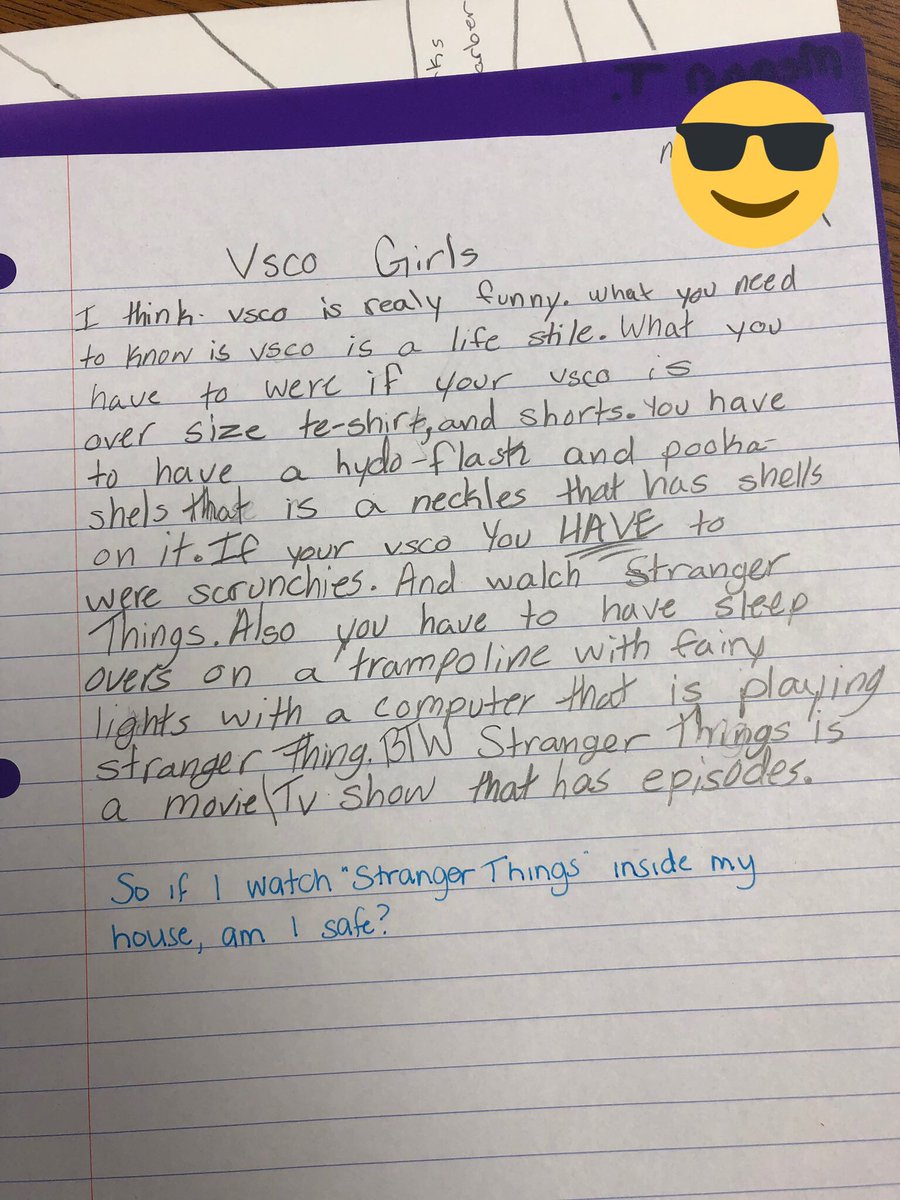 ks
arber
Vsco Girls
I think vsco is realy funny. What you need
to know is vsco is a life stile. What you
have to were if your vsco is
over size te-shirt, and shorts. You have
to have a hydo-flask and pooka-
shels that is a neckles that has shells
on it. If your vsco You HAVE to
were scrunchies. And watch Stranger
Things. Also you have to have sleep
overs on a trampoline with fairy
lights with a computer that is playing
stranger Thing. BTW Stranger Things is
a movie\Tv show that has episodes.
So if I watch "Stranger Things" inside my
house, am I safe?